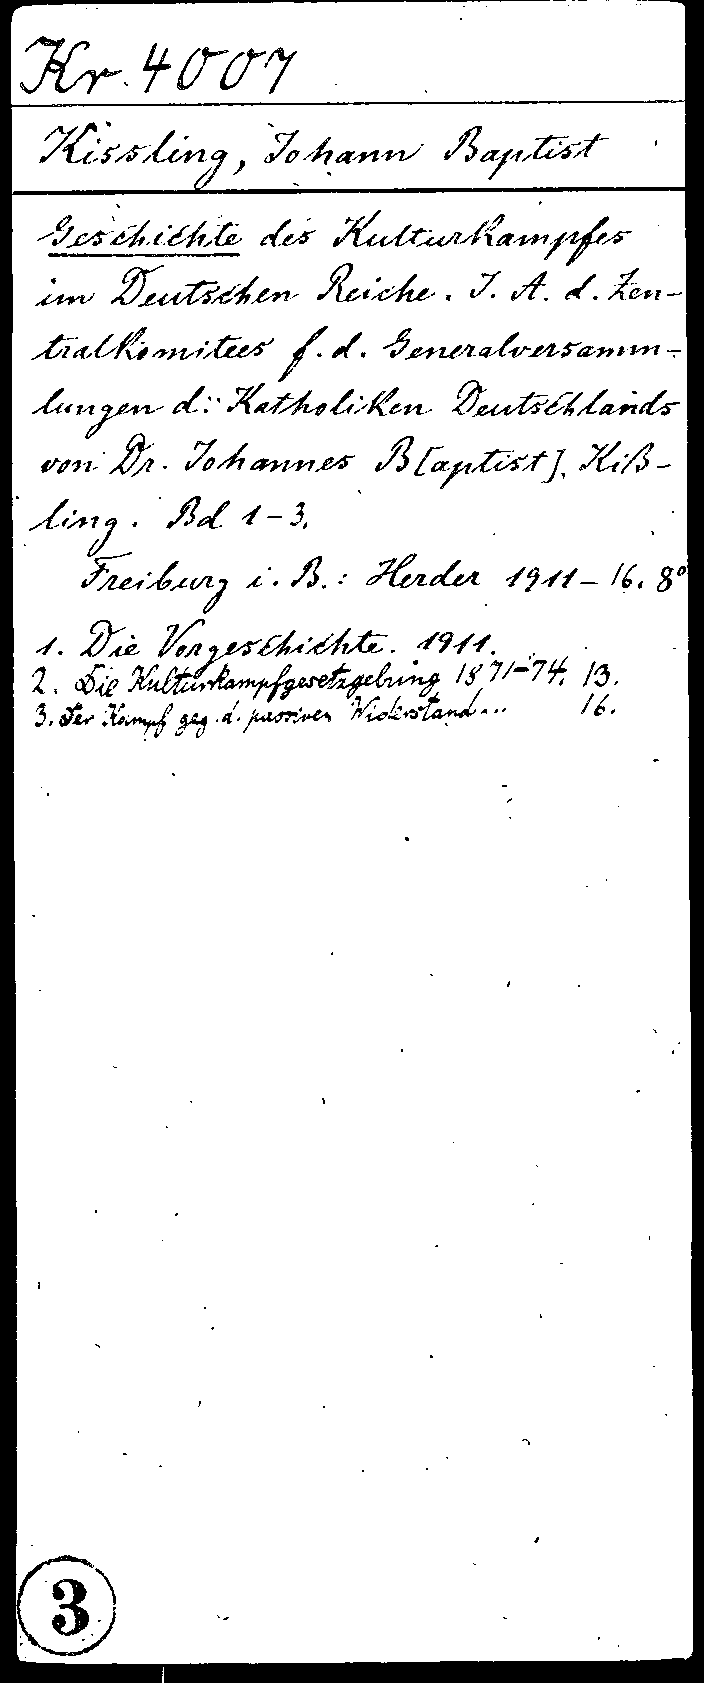 Kr. 4007
Kissling, Johann Baptist
Geschichte des Kulturkampfes
im Deutschen Reiche. I. A. d. Zen-
tralkomitees f. d. Generalversamm-
lungen d. Katholiken Deutschlands
von Dr. Johannes B[aptist]. Kiß-
ling. Bd 1-3.
Freiburg i. B.: Herder 1911-16. 8°
1. Die Vorgeschichte. 1911.
2. Die Kulturkampfgesetzgebung 1871-74. 13.
3. Der Kampf geg. d. passiven Widerstand... 16.
3